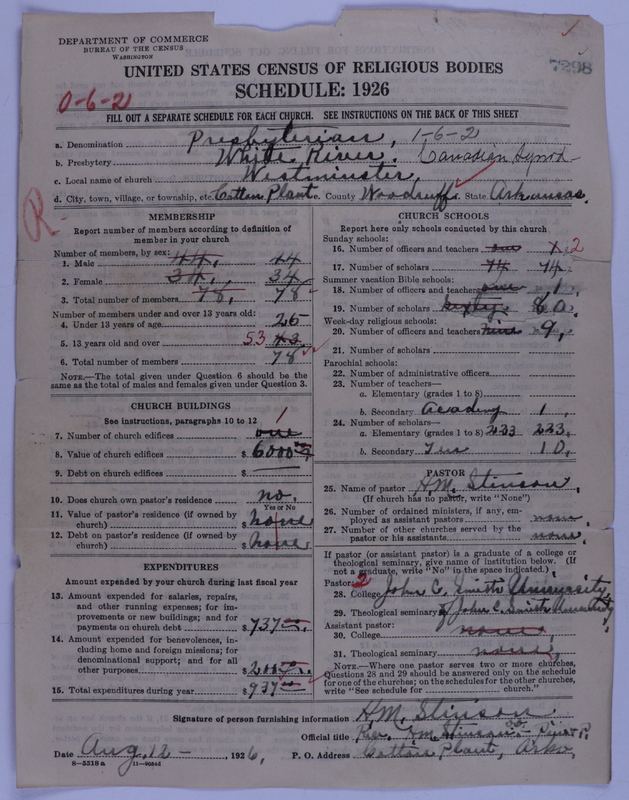 DEPARTMENT OF COMMERCE
BUREAU OF THE CENSUS
WASHINGTON
7298
UNITED STATES CENSUS OF RELIGIOUS BODIES
SCHEDULE: 1926
0-6-2
FILL OUT A SEPARATE SCHEDULE FOR EACH CHURCH. SEE INSTRUCTIONS ON THE BACK OF THIS SHEET
a. Denomination Presbyterian, 1-6-2
b. Presbytery White River. Canadian Synod
c. Local name of church Westminster
d. City, town, village, or township, etc. Cotton Plant e. County Woodruff State Arkansas.
R-
MEMBERSHIP
Report number of members according to definition of
member in your church
Number of members, by sex:
1. Male 44, 44
2. Female 34, 34
3. Total number of members 78, 78
Number of members under and over 13 years old:
4. Under 13 years of age 25
5. 13 years old and over 53
6. Total number of members 78
NOTE.—The total given under Question 6 should be the
same as the total of males and females given under Question 3.
CHURCH BUILDINGS
See instructions, paragraphs 10 to 12
7. Number of church edifices one 1
8. Value of church edifices $ 6000
9. Debt on church edifices $
10. Does church own pastor's residence no.
Yes or No
11. Value of pastor's residence (if owned by
church) $ none
12. Debt on pastor's residence (if owned by
church) $ none
EXPENDITURES
Amount expended by your church during last fiscal year
13. Amount expended for salaries, repairs,
and other running expenses; for im-
provements or new buildings; and for
payments on church debt $ 737 00
14. Amount expended for benevolences, in-
cluding home and foreign missions; for
denominational support; and for all
other purposes $ 200
15. Total expenditures during year $ 937 00
CHURCH SCHOOLS
Report here only schools conducted by this church
Sunday schools:
16. Number of officers and teachers 2
17. Number of scholars 74 74
Summer vacation Bible schools:
18. Number of officers and teachers one 1
19. Number of scholars sixty 60
Week-day religious schools:
20. Number of officers and teachers nine 9,
21. Number of scholars
Parochial schools:
22. Number of administrative officers
23. Number of teachers—
a. Elementary (grades 1 to 8)
b. Secondary Academy 1,
24. Number of scholars—
a. Elementary (grades 1 to 8) 233 233,
b. Secondary Ten 10,
PASTOR
25. Name of pastor H.M. Stinson,
(If church has no pastor, write "None")
26. Number of ordained ministers, if any, em-
ployed as assistant pastors none
27. Number of other churches served by the
pastor or his assistants none
If pastor (or assistant pastor) is a graduate of a college or
theological seminary, give name of institution below. (If
not a graduate, write "No" in the space indicated.)
Pastor: 2
28. College John C. Smith University
29. Theological seminary of John C. Smith University
Assistant pastor:
30. College none
31. Theological seminary none,
NOTE.—Where one pastor serves two or more churches,
Questions 28 and 29 should be answered only on the schedule
for one of the churches; on the schedules for the other churches,
write "See schedule for church."
Signature of person furnishing information H.M. Stinson
Official title Rev. H.M. Stinson
Date Aug, 12 - , 1926, P. O. Address Cotton Plant, Ark,
8—5518 a